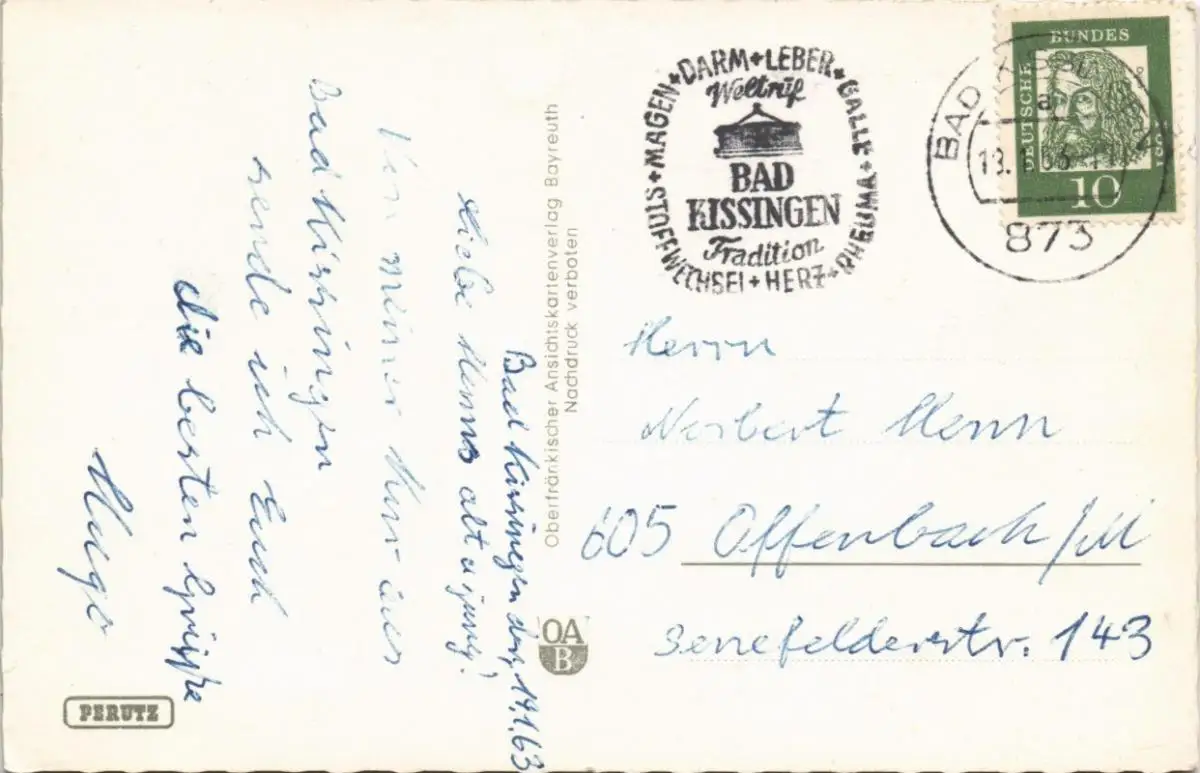 Bad Kissingen den, 14.1.63
Liebe Henns alt u jung!
Von meiner Kur aus
Bad Kissingen
sende ich Euch
die besten Grüsse
Hugo
Oberfränkischer Ansichtskartenverlag Bayreuth
Nachdruck verboten
OA
B
PERUTZ
STOFFWECHSEL + MAGEN + DARM + LEBER + GALLE + RHEUMA + HERZ +
Weltruf
BAD
KISSINGEN
Tradition
BAD KISSINGEN
a
873
DEUTSCHE BUNDES
10
Herrn
Norbert Henn
605 Offenbach/M
Senefelderstr. 143